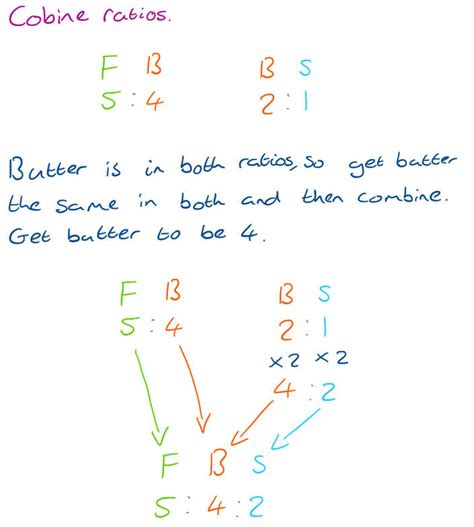 Cobine ratios.
F B B S
5 : 4 2 : 1
Butter is in both ratios, so get butter
the same in both and then combine.
Get butter to be 4.
F B B S
5 : 4 2 : 1
×2 ×2
4 : 2
F B S
5 : 4 : 2